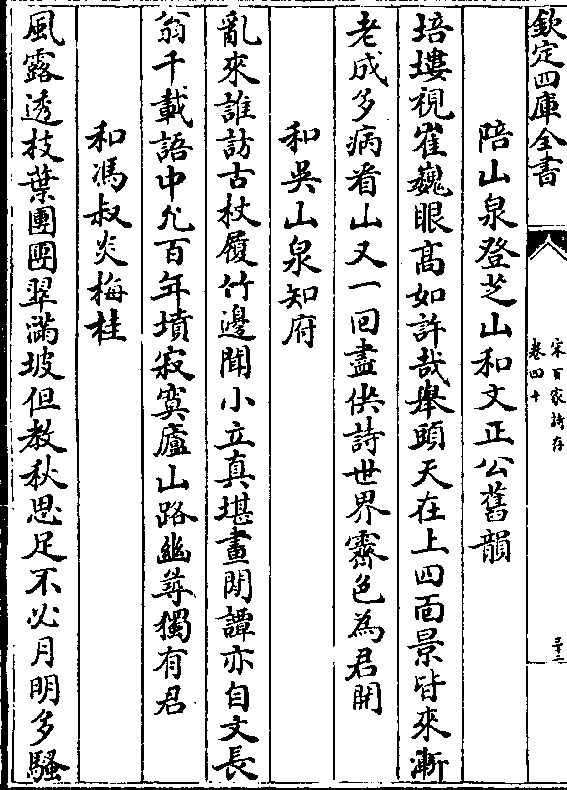 欽定四庫全書
宋百家詩存
卷四十
三十二
陪山泉登芝山和文正公舊韻
培塿視崔巍眼髙如許哉舉頭天在上四面景皆來漸
老成多病看山又一回盡供詩世界霽色為君開
和吳山泉知府
亂來誰訪古杖履竹邊聞小立真堪畫閒譚亦自文長
翁千載語中允百年墳寂寞廬山路幽尋獨有君
和馮叔炎梅桂
風露透枝葉團團翠滿坡但教秋思足不必月明多騷